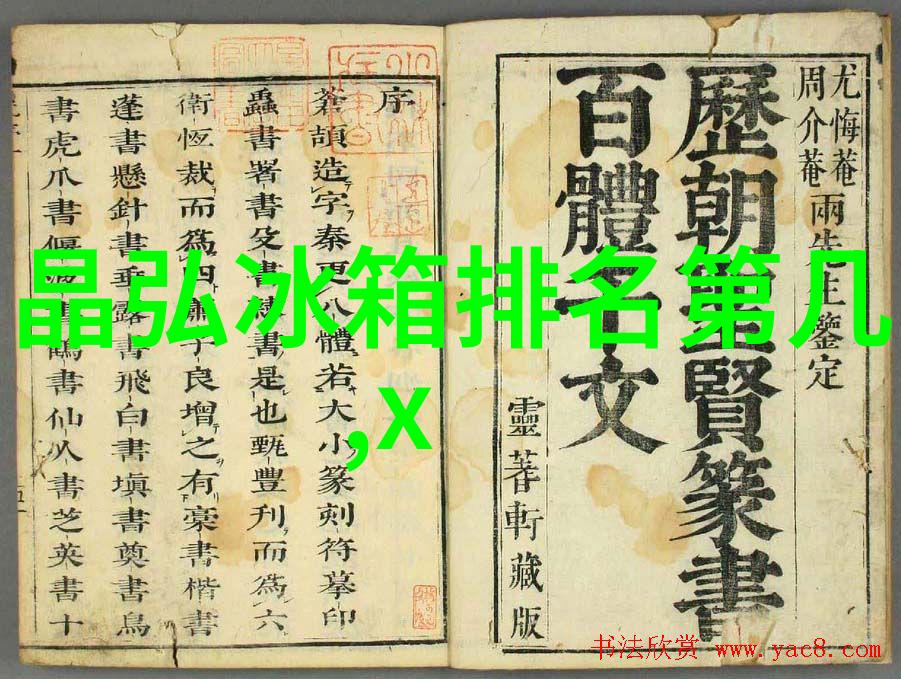 晶弘冰箱排名第几
,x
尤悔菴
周介菴
兩先生鑒定
歷朝聖賢篆書
百體千文
靈蓍軒藏版
序
蒼頡造字秦更八體若大小篆刻符摹印
蟲書署書殳書隸書是也甄豐刊而為六
衛恆裁而為四蕭子良增之有豪書楷書
蓬書懸針書垂露書飛白書填書奠書鳥
書虎爪書偃波書鶴書仙人書芝英書十
书法欣赏 www.yac8.com